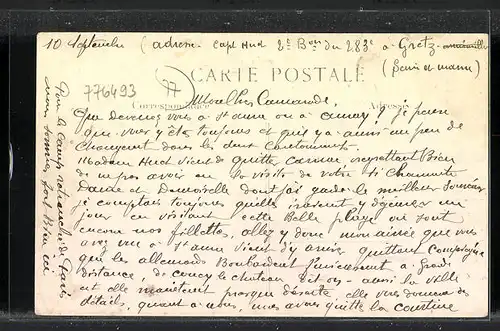 10 Septembre (adresse Capt Hud 2e Bon du 283e a Gretz
(Seine et marne)
776493
CARTE POSTALE
Correspondance
Adresse
Mon Cher Camarade,
Que devenez vous a ste anne ou a Je pense
que vous y êtes toujours et qu'il y a aussi un peu de
changement dans les deux cantonnements.
Madame Hud vient de quitter Carnac regrettant Bien
de ne pas avoir eu la visite de votre si charmante
Dame et Demoiselle dont j'ai garder le meilleur Souvenir
je comptais toujours qu'elles iraient y déjeuner un
jour en visitant cette Belle plage ou sont
encore nos fillettes, allez y donc mon aimée que vous
avez vu a ste anne vient d'y arriver quittant Compiègne
que les allemands Bombardent furieusement a Grande
distance, de coucy le chateau dit on - aussi la ville
est elle maintenant presque déserte, elle vous donnera des
détails, quant a nous, nous avons quitté la
Pour le camp retranché de Paris
nous sommes fort Bien ici